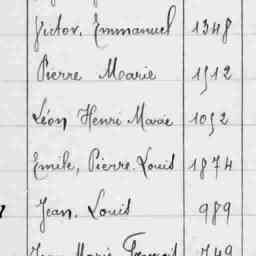 Victor, Emmanuel 1348
Pierre Marie 1512
Léon Henri Marie 1052
Emile, Pierre. Louis 1874
Jean. Louis 989
Jean Marie François 749